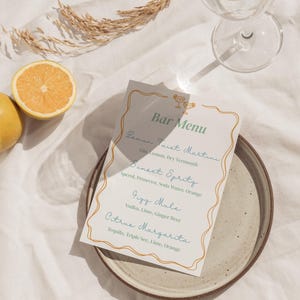 Bar Menu
Lemon Twist Martini
Gin, Lemon, Dry Vermouth
Sunset Spritz
Aperol, Prosecco, Soda Water, Orange
Gigg Mule
Vodka, Lime, Ginger Beer
Citrus Margarita
Tequila, Triple Sec, Lime, Orange